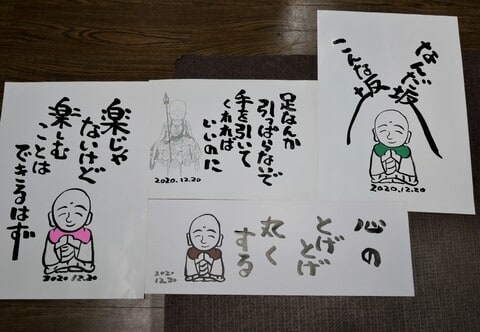 楽じゃ
ないけど
楽しむ
ことは
できるはず
2020.12.20
足なんか
引っぱらないで
手を引いて
くれれば
いいのに
2020.12.20
なんだ坂
こんな坂
2020.12.20
心の
とげとげ
丸く
する
2020
12.20